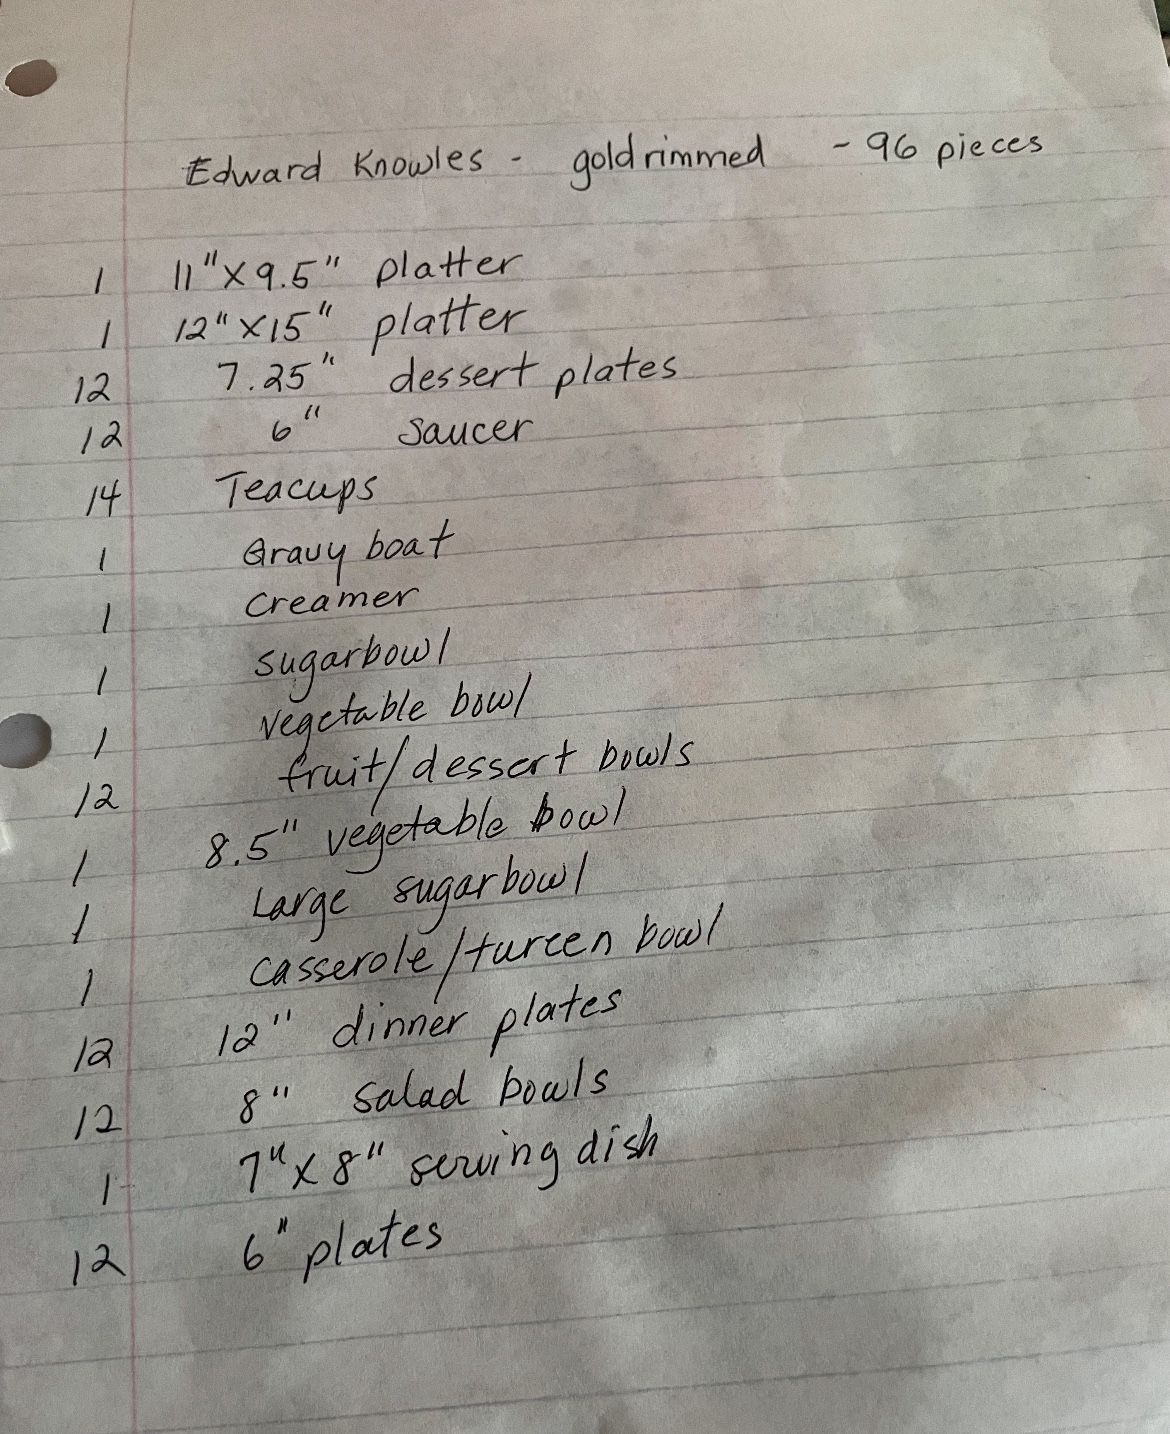 Edward Knowles - goldrimmed - 96 pieces
1 11" X 9.5" platter
1 12" X 15" platter
12 7.25" dessert plates
12 6" saucer
14 Teacups
1 Gravy boat
1 creamer
1 sugarbowl
1 vegetable bowl
12 fruit/dessert bowls
1 8.5" vegetable bowl
1 Large sugarbowl
1 casserole/tureen bowl
12 12" dinner plates
12 8" salad bowls
1 7" X 8" serving dish
12 6" plates